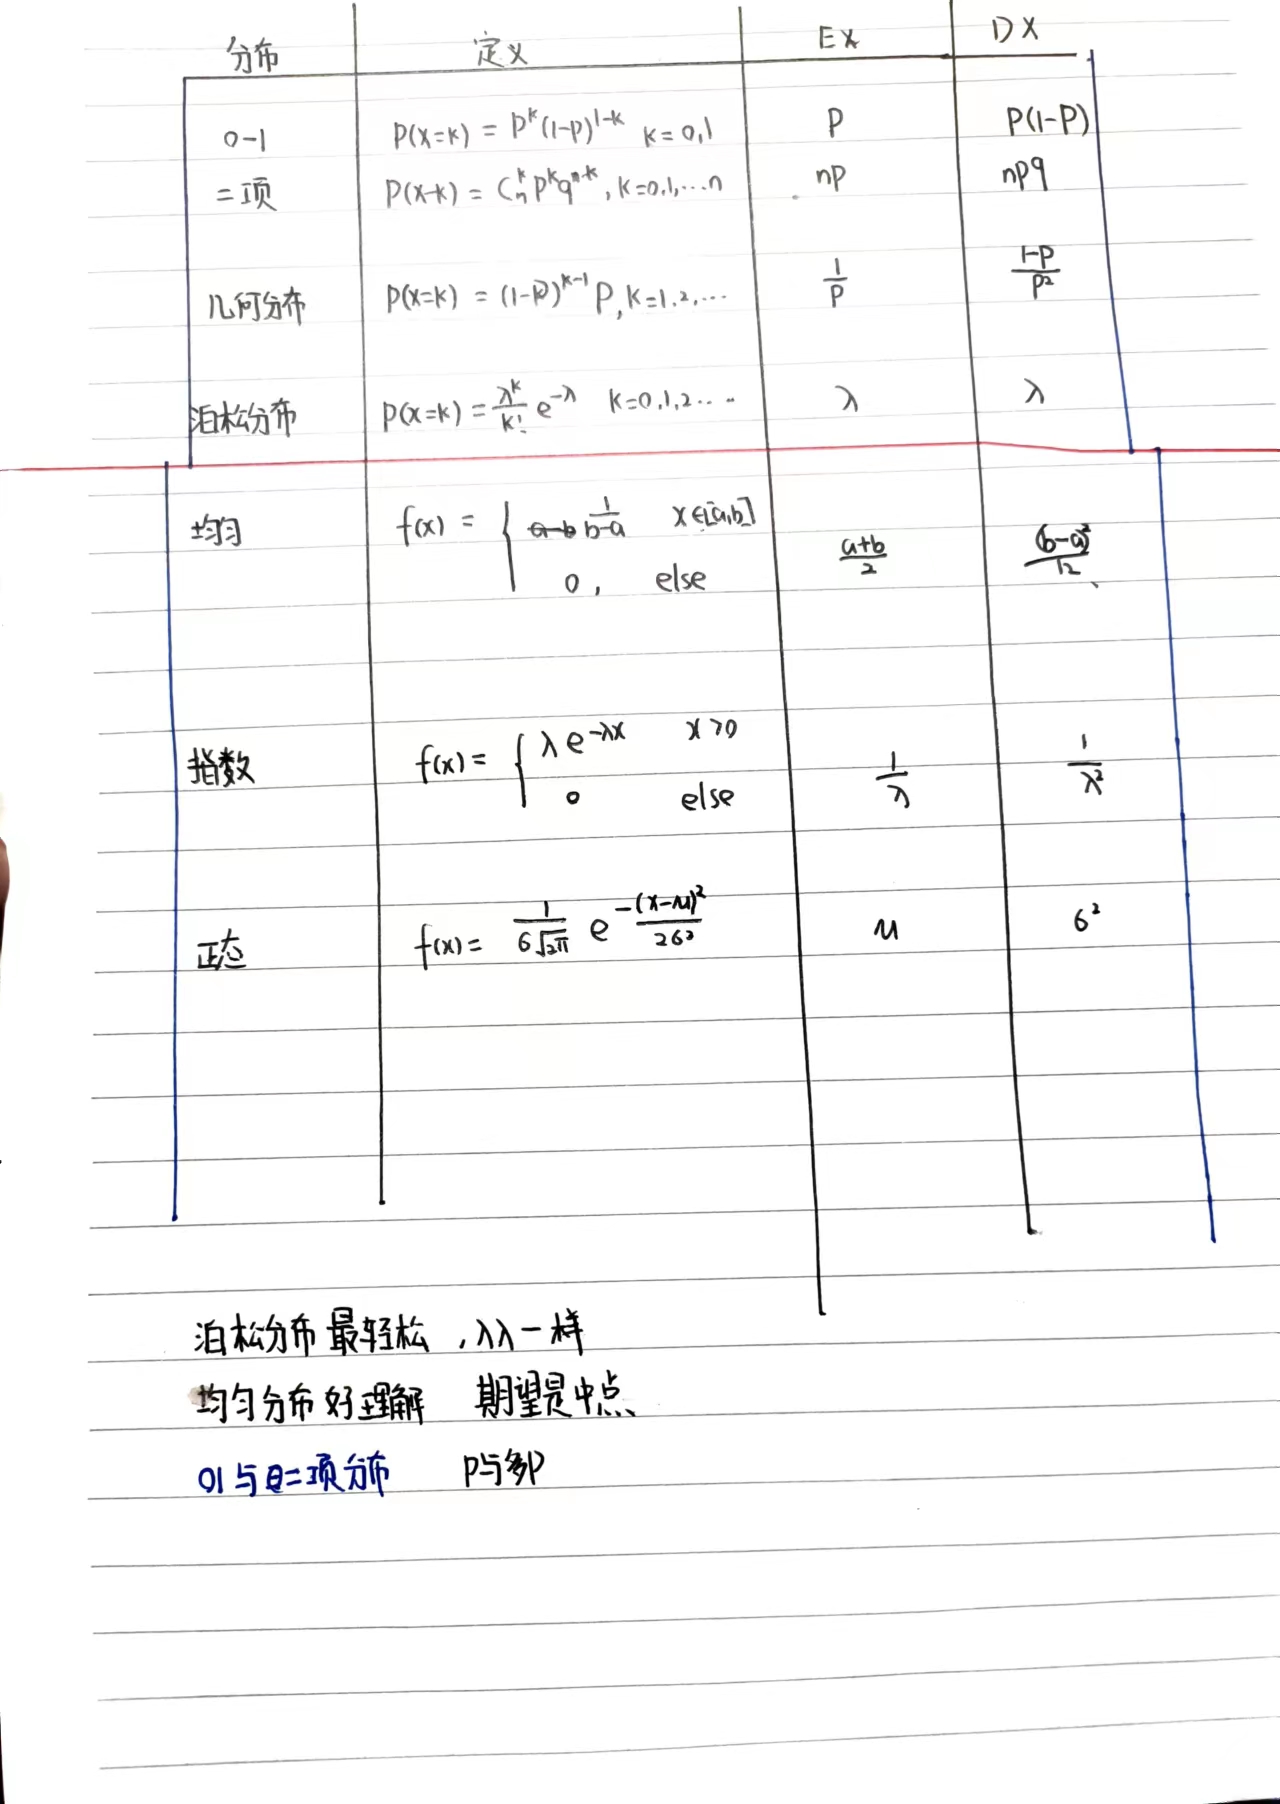 分布 定义 EX DX
0-1 P(X=k) = P^k(1-P)^{1-k} k=0,1 P P(1-P)
二项 P(X-k) = C_n^k P^k q^{n-k}, k=0,1,…n nP npq
几何分布 P(X=k) = (1-P)^{k-1} P, k=1,2,… 1/P (1-P)/P²
泊松分布 P(X=k) = λ^k/k! e^{-λ} k=0,1,2… λ λ
均匀 f(x) = { 1/(b-a) x∈[a,b] (a+b)/2 (b-a)²/12
0, else
指数 f(x) = { λe^{-λx} x>0 1/λ 1/λ²
0 else
正态 f(x) = 1/(6√2π) e^{-(x-μ)²/26²} μ 6²
泊松分布最轻松,λλ一样
均匀分布好理解 期望是中点
01与二项分布 P与多P